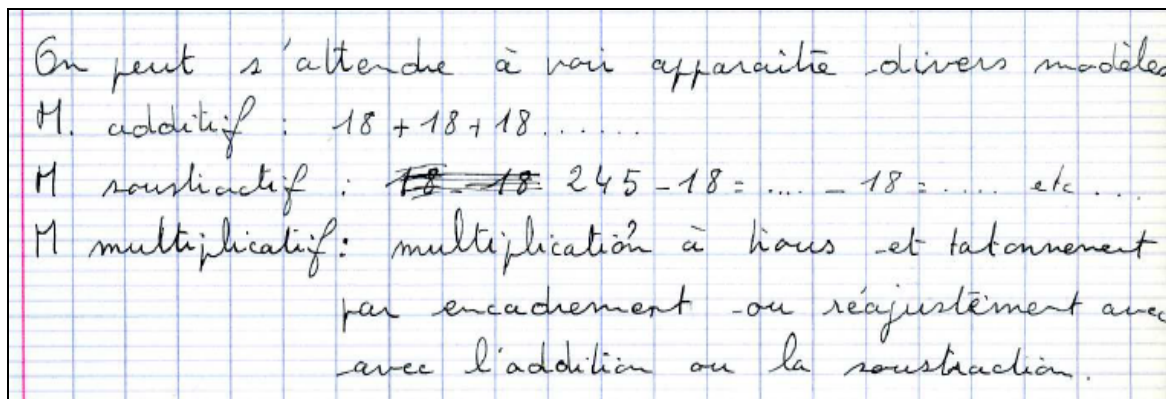 On peut s'attendre à voir apparaitre divers modèles
M. additif : 18 + 18 + 18 ......
M soustractif : 18 - 18 245 - 18 = .... - 18 = .... etc ...
M multiplicatif : multiplication à trous et tatonnement
par encadrement ou réajustement avec
avec l'addition ou la soustraction.